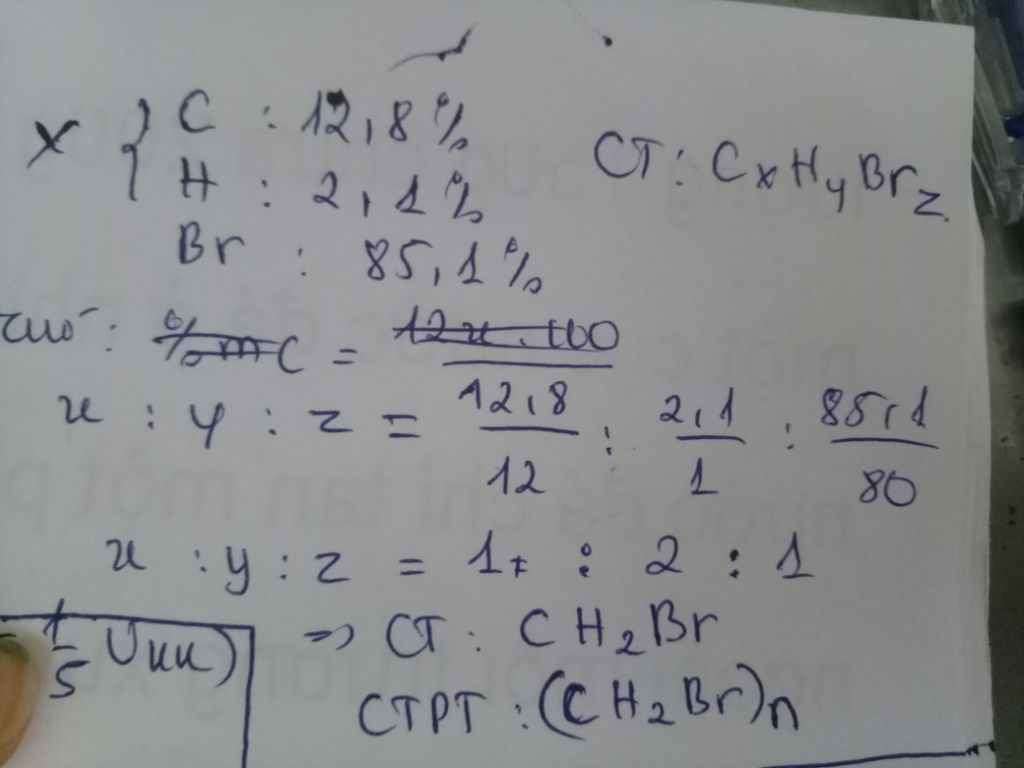 X { C : 12,8%
H : 2,1%
Br : 85,1%
CT : CxHyBrz
%mC = 12x.100
x : y : z = 12,8/12 : 2,1/1 : 85,1/80
x : y : z = 1 : 2 : 1
=> CT : CH2Br
1/5 Vkk)
CTPT : (CH2Br)n